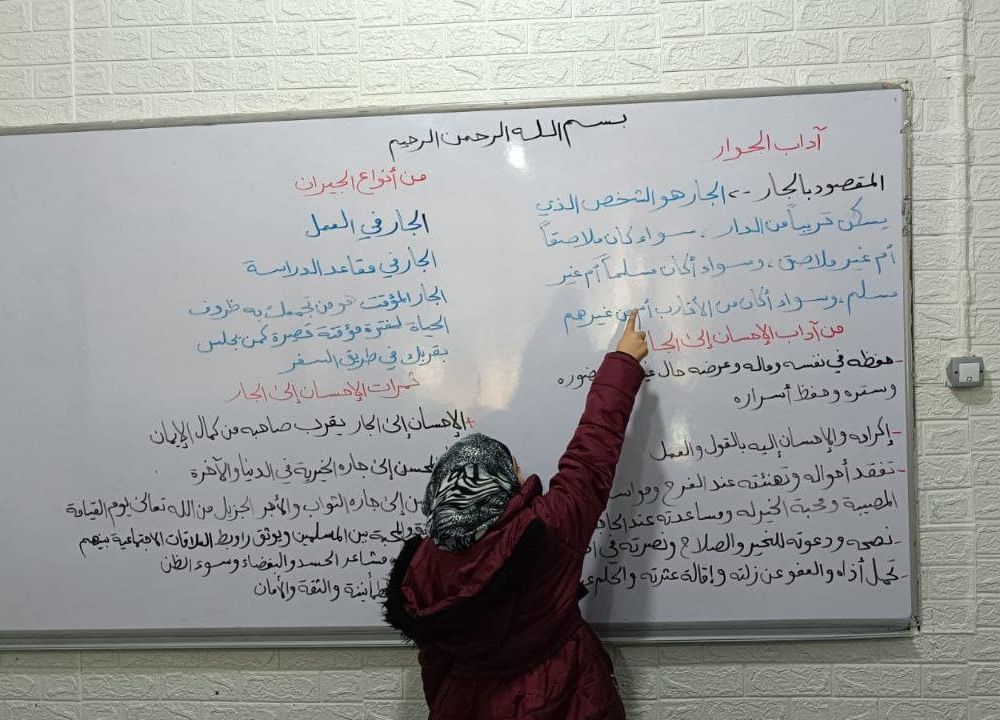 بسم الله الرحمن الرحيم
آداب الجوار
المقصود بالجار -> الجار هو الشخص الذي
يسكن قريباً من الدار ، سواء كان ملاصقاً
أم غير ملاصق ، وسواء أكان مسلماً أم غير
مسلم ، وسواء أكان من الأقارب أم من غيرهم
من آداب الإحسان إلى الجا
- حفظه في نفسه وماله وعرضه حال حضوره
وستره وحفظ أسراره
- إكرامه والإحسان إليه بالقول والعمل
- تفقد أحواله وتهنئته عند الفرح ومواس
المصيبة ومحبة الخير له ومساعدته عند الحا
- نصحه ودعوته للخير والصلاح ونصرته في
- تحمل أذاه والعفو عن زلته وإقالة عثرته والحلم
من أنواع الجيران
الجار في العمل
الجار في مقاعد الدراسة
الجار المؤقت هو من تجمعك به ظروف
الحياة لفترة مؤقتة قصيرة كمن يجلس
بقربك في طريق السفر
ثمرات الإحسان إلى الجار
+ الإحسان إلى الجار يقرب صاحبه من كمال الإيمان
المحسن إلى جاره الخيرية في الدنيا والآخرة
إلى جاره الثواب والأجر الجزيل من الله تعالى يوم القيامة
والمحبة بين المسلمين ويوثق روابط العلاقات الاجتماعية بينهم
مشاعر الحسد والبغضاء وسوء الظن
والثقة والأمان